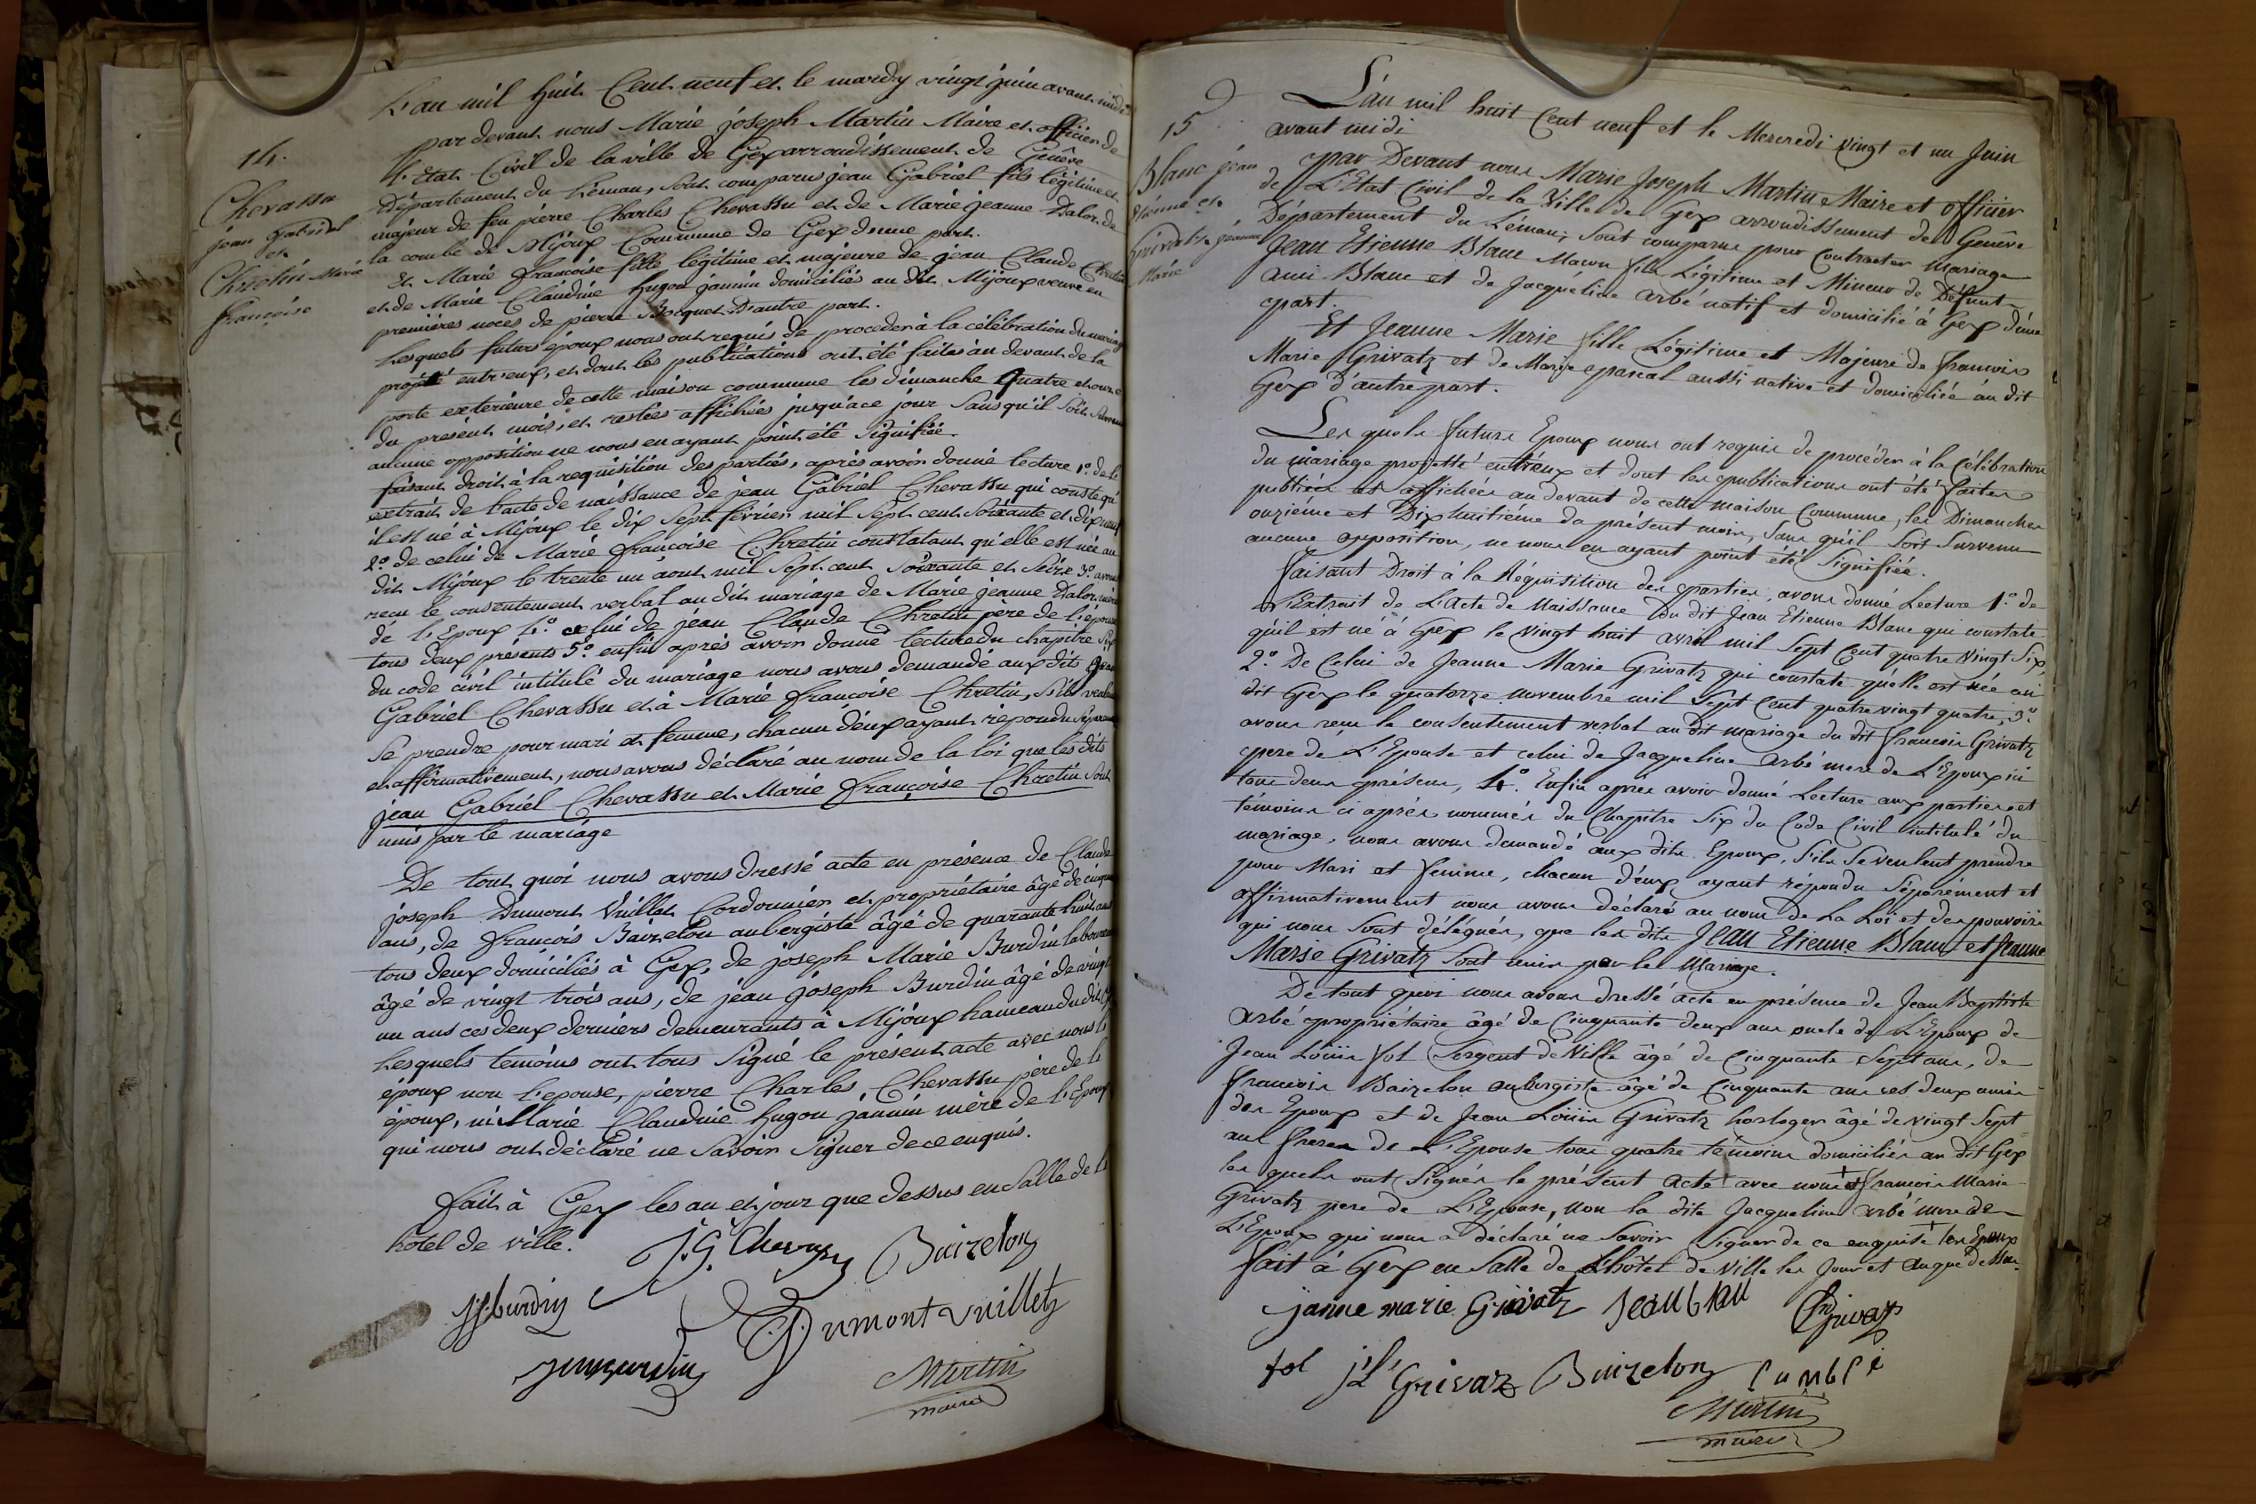 14.
Chevassu
jean Gabriel
et
Chretin Marie
françoise
L'an mil huit Cent neuf et le mardy vingt juin avant midi
par devant nous Marie joseph Martin Maire et officier de
l'Etat Civil de la ville de Gex arrondissement de Genêve
Département du Léman, sont comparus jean Gabriel fils légitime et
majeur de feu pierre Charles Chevassu et de Marie jeanne Dalor de
la combe de Mijoux Commune de Gex d'une part.
Et Marie françoise fille légitime et majeure de jean Claude Chretin
et de Marie Claudine hugon jannin domiciliés au dit Mijoux veuve en
premières noces de pierre Bouquet D'autre part.
Lesquels futurs epoux nous ont requis de proceder à la célébration du mariage
projetté entr'eux, et dont les publications ont été faites au devant de la
porte exterieure de cette maison commune les dimanche quatre et onze
du présent mois, et restées affichées jusqu'a ce jour sans qu'il soit survenu
aucune opposition ne nous en ayant point été signifiée.
faisant droit à la requisition des parties, après avoir donné lecture 1.º de l'
extrait de l'acte de naissance de jean Gabriel Chevassu qui constate qu'
il est né à Mijoux le dix sept fevrier mil sept cent soixante et dix neuf
2.º de celui de Marie françoise Chretin constatant qu'elle est née au
dit Mijoux le trente un aout mil sept cent soixante et seize 3.º avons
recu le consentement verbal au dit mariage de Marie jeanne Dalor mère
de l'Epoux 4.º celui de jean Claude Chretin père de l'épouse
tous deux présents 5.º enfin après avoir donné lecture du chapitre six
du code civil intitulé du mariage nous avons demandé aux dits jean
Gabriel Chevassu et à Marie françoise Chretin, s'ils veulent
se prendre pour mari et femme, chacun d'eux ayant répondu séparément
et affirmativement, nous avons déclaré au nom de la loi que les dits
jean Gabriel Chevassu et Marie françoise Chretin sont
unis par le mariage
De tout quoi nous avons dressé acte en présence de Claude
joseph Dumont Vuillet Cordonnier et propriétaire âgé de cinquante
ans, de françois Baizelon aubergiste âgé de quarante huit ans
tous deux domiciliés à Gex, de joseph Marie Burdin laboureur
âgé de vingt trois ans, de jean joseph Burdin âgé de vingt
un ans ces deux derniers demeurants à Mijoux hameau du dit Gex
Lesquels témoins ont tous signé le présent acte avec nous et l'
époux non l'epouse, pierre Charles Chevassu père de l'
époux, ni Marie Claudine hugon jannin mère de l'Epoux
qui nous ont déclaré ne savoir signer de ce enquis.
fait à Gex les an et jour que dessus en salle de l'
hotel de ville.
J. G. Chevassu Baizelon
jjburdin
Dumont vuillet
jmburdin
Martin
maire
15
Blanc jean
Etienne et
Grivatz jeanne
Marie
L'an mil huit Cent neuf et le Mercredi vingt et un Juin
avant midi
par Devant nous Marie Joseph Martin Maire et officier
de L'Etat Civil de la Ville de Gex arrondissement de Genêve
Département du Léman, sont comparus pour Contracter mariage
Jean Etienne Blanc Macon fils Légitime et Mineur de Défunt
ami Blanc et de Jacqueline arbé natif et domicilié à Gex d'une
part.
Et Jeanne Marie fille Légitime et Majeure de francois
Marie Grivatz et de Marie pascal aussi native et domiciliée au dit
Gex d'autre part.
Les quels futurs Epoux nous ont requis de procéder à la Célébration
du mariage projetté entr'eux et dont les publications ont été faites
publiées et affichées au devant de cette maison Commune, les Dimanches
onzieme et Dix huitième du présent mois, sans qu'il soit survenu
aucune opposition, ne nous en ayant point été signifiée.
faisant Droit à la Réquisition des parties, avons donné Lecture 1.º de
l'Extrait de L'Acte de Naissance Du dit Jean Etienne Blanc qui constate
qu'il est né à Gex le vingt huit avril mil sept Cent quatre vingt six,
2.º De Celui de Jeanne Marie Grivatz qui constate qu'elle est née au
dit Gex le quatorze novembre mil sept Cent quatre vingt quatre, 3.º
avons reçu le consentement verbal au dit mariage du dit francois Grivatz
pere de L'Epouse et celui de Jacqueline arbé mere de L'Epoux ici
tous deux présens, 4.º Enfin aprés avoir donné Lecture aux parties et
témoins ci aprés nommés du Chapitre six du Code Civil intitulé du
mariage, nous avons demandé aux dits Epoux, s'ils se veulent prendre
pour Mari et femme, chacun d'eux ayant répondu séparément et
affirmativement nous avons déclaré au nom de La Loi et des pouvoirs
qui nous sont délégués, que les dits Jean Etienne Blanc et Jeanne
Marie Grivatz sont unis par le Mariage.
De tout quoi nous avons dressé acte en présence de Jean Baptiste
arbé propriétaire âgé de Cinquante deux ans oncle de L'Epoux de
Jean Loüis fol Sergent de Ville âgé de Cinquante sept ans, de
francois Baizelon aubergiste âgé de Cinquante ans ces deux amis
des Epoux et de Jean Loüis Grivatz horloger âgé de vingt sept
ans frere de L'Epouse tous quatre témoins domiciliés au dit Gex
les quels ont signés le présent acte avec nous + et francois Marie
Grivatz pere de L'Epouse, non la dite Jacqueline arbé mere de
L'Epoux qui nous a déclaré ne savoir signer de ce enquise + les Epoux
fait à Gex en Salle de L'hôtel de Ville les Jour et an que dessus.
janne marie Grivatz Jean blan fmGrivaz
fol jL Grivaz Baizelon
Martin
maire